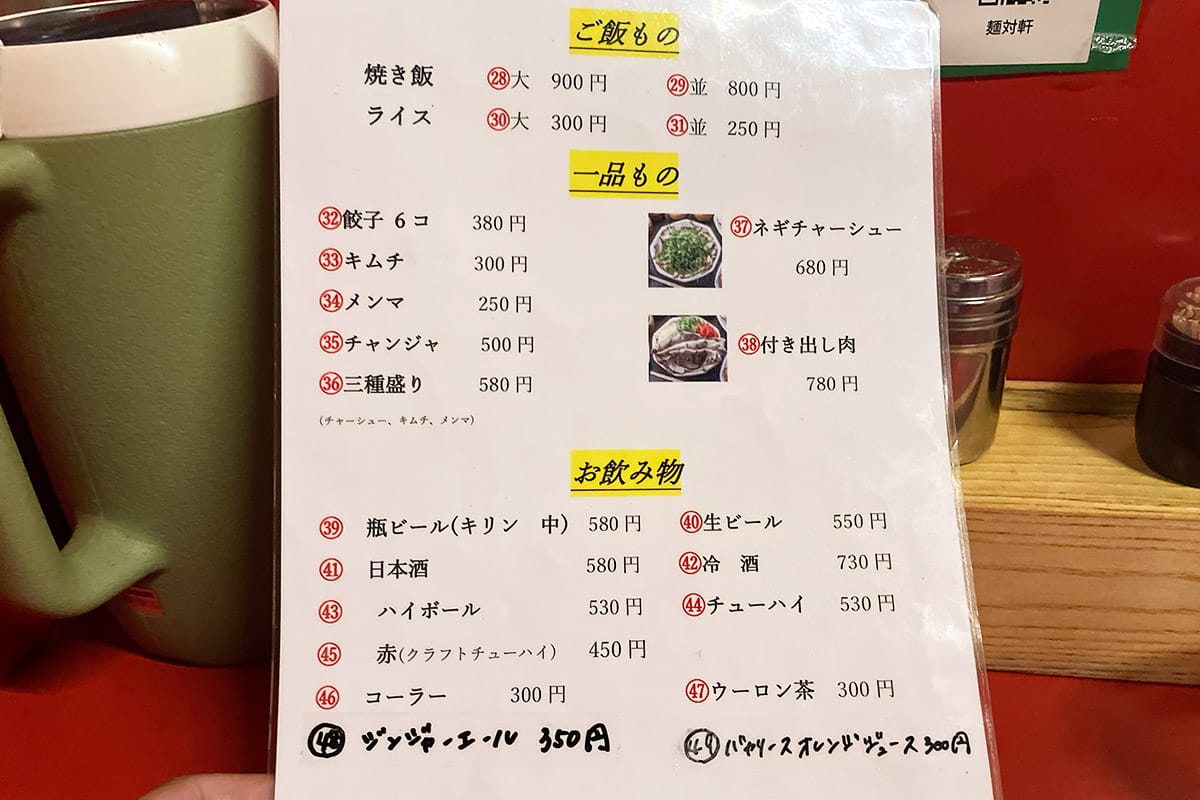 麺対軒
ご飯もの
焼き飯 ㉘大 900円 ㉙並 800円
ライス ㉚大 300円 ㉛並 250円
一品もの
㉜餃子 6コ 380円
㉝キムチ 300円
㉞メンマ 250円
㉟チャンジャ 500円
㊱三種盛り 580円
(チャーシュー、キムチ、メンマ)
㊲ネギチャーシュー
680円
㊳付き出し肉
780円
お飲み物
㊴ 瓶ビール(キリン 中) 580円 ㊵生ビール 550円
㊶ 日本酒 580円 ㊷冷 酒 730円
㊸ ハイボール 530円 ㊹チューハイ 530円
㊺ 赤(クラフトチューハイ) 450円
㊻ コーラー 300円 ㊼ウーロン茶 300円
㊽ ジンジャーエール 350円 ㊾バヤリースオレンジジュース300円